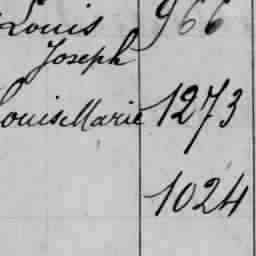 Louis 966
Joseph
Louis Marie 1273
1024